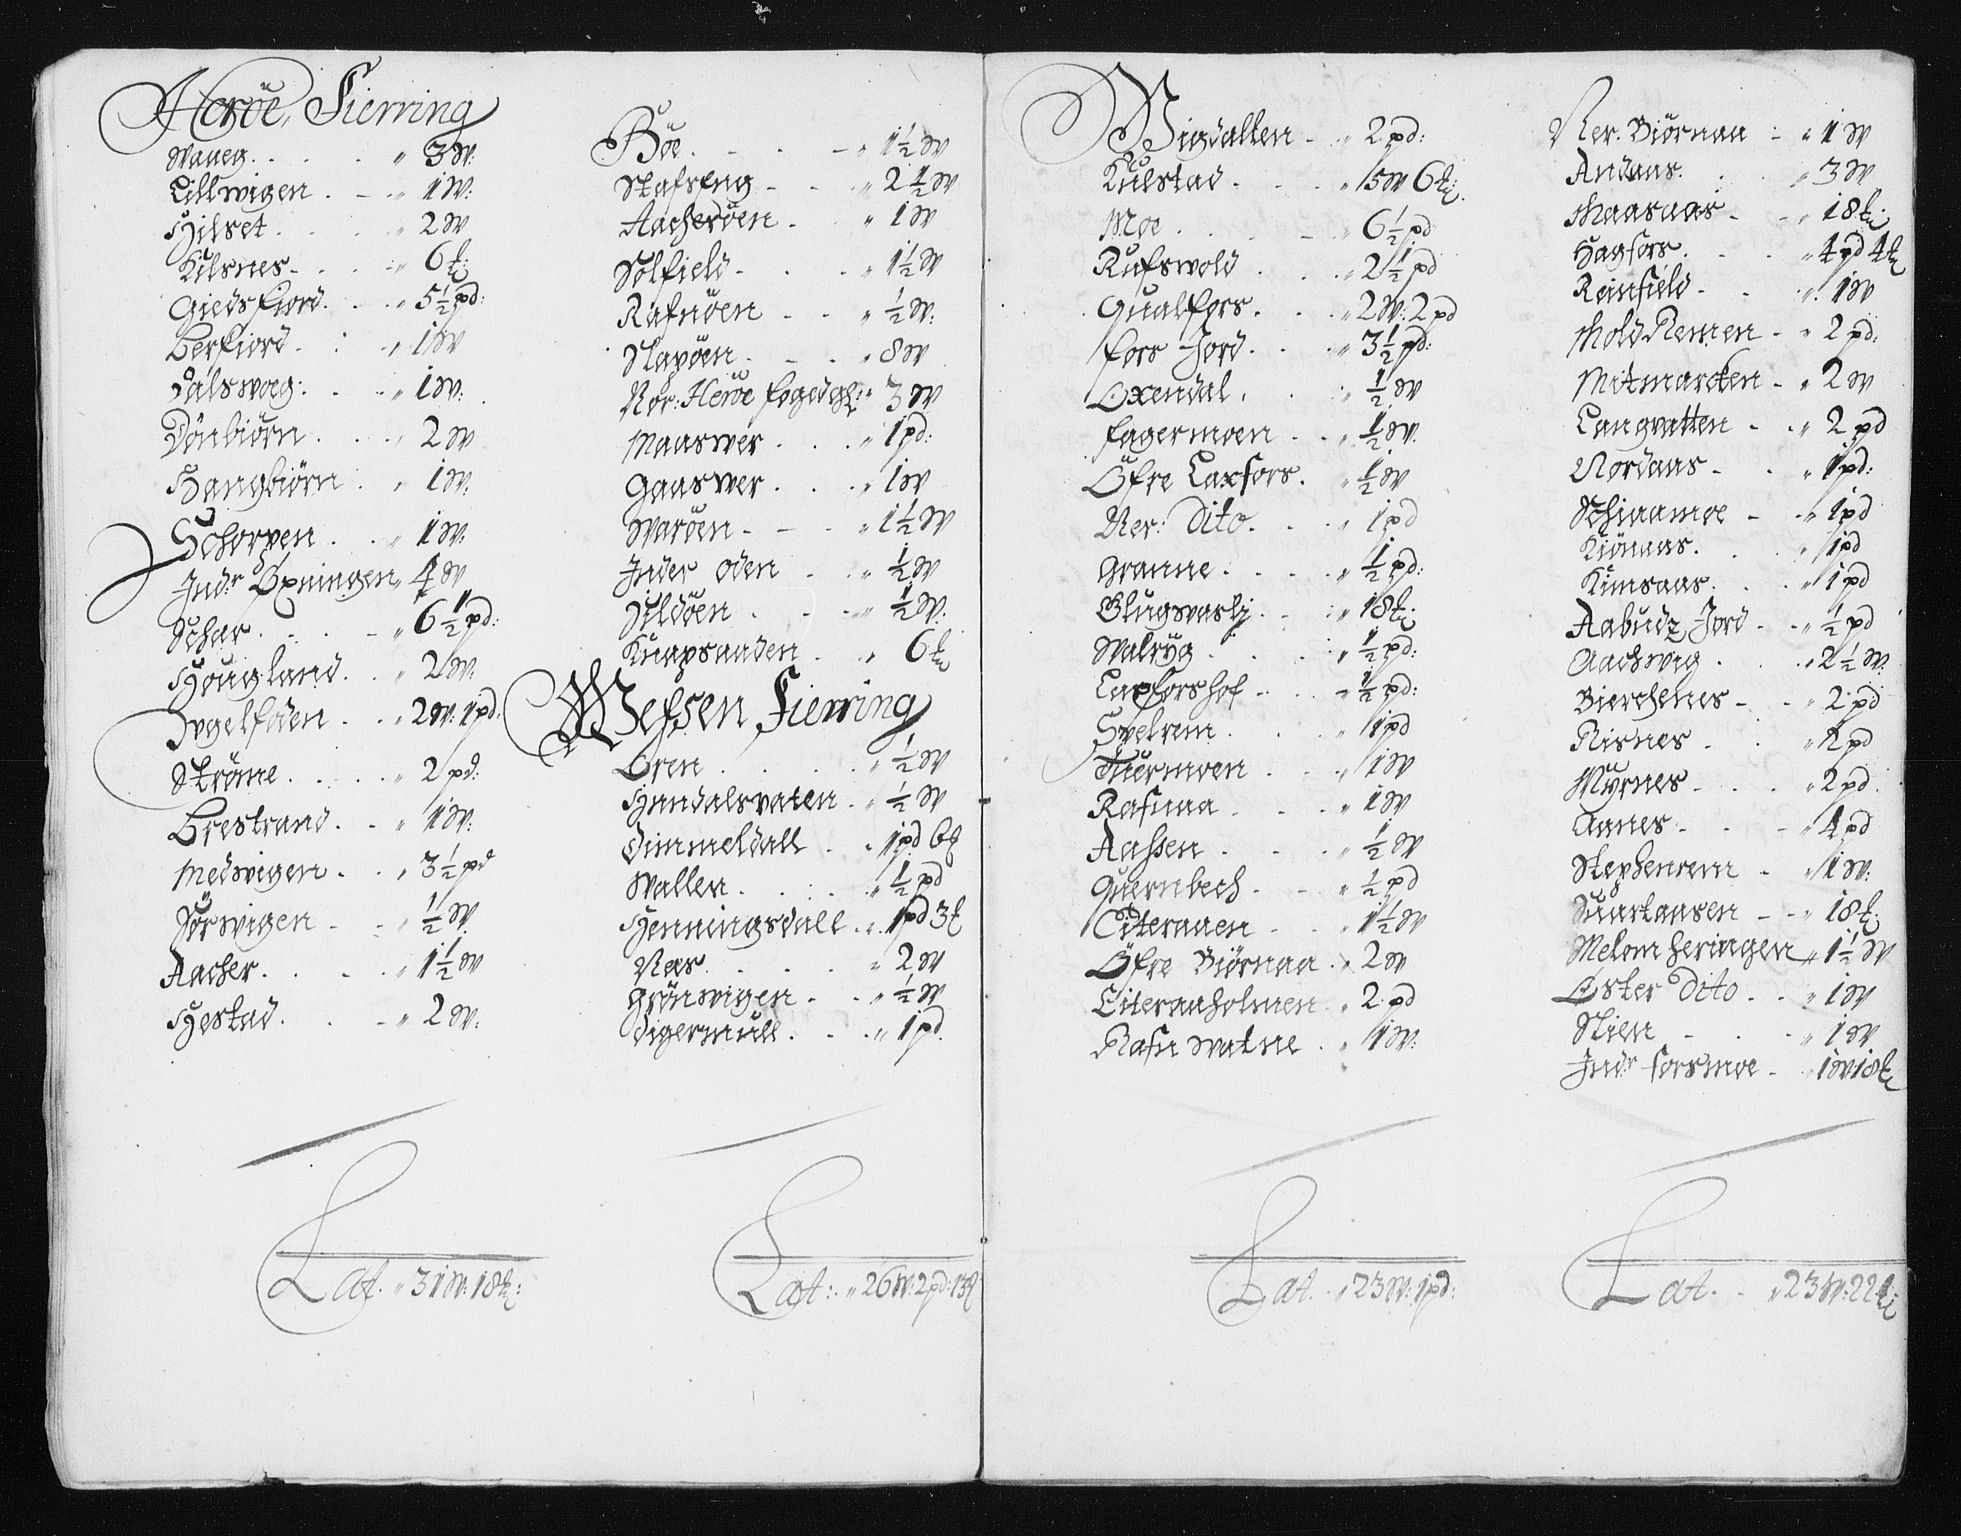 Heröe, Fierring
Waaeg. . . . „ 3 W:
Lillwigen . - - „ 1 W:
Hilset. . . . „ 2 W
Kilsnes - . . „ 6 ℔:
Giedsfiord. . . „ 5½ pd:
Berfiord. . . „ 1 W
Dalswoeg: . . „ 1 W:
Dönbiörn . . . „ 2 W
Hangbiörn . . „ 1 W:
Schorpen . . „ 1 W:
Indr Öxningen „ 4 W
Schar. . . - „ 6½ pd:
Hougland. . . „ 2 W:
Igelfoden . . „ 2 W: 1 pd:
Ströme. . . . „ 2 pd:
Brestrand. . „ 1 W:
Medwigen . . „ 3½ pd
Sörwigen . - „ ½ W
Aacher. . . . „ 1½ W
Hestad. . . - „ 2 W:
Lat. „ 31 W: 18 ℔:
Böe. . - . - „ 1½ W
Stafseng - . . „ 2½ W
Aacheröen . . „ 1 W
Solfield - . . „ 1½ W
Rafnöen . . „ ½ W:
Slapöen. . - . „ 8 W
Nor: Heröe fogedgl: „ 3 W
Maaswer . . . „ 1 pd:
Gaaswer . . . „ 1 W
Waröen - - . „ 1½ W
Inder Öden . . „ ½ W
Sildöen . . . „ ½ W:
Knapsanden . „ 6 ℔
Wefsen Fierring
Oren . . . . „ ½ W
Hundalsvaten . „ ½ W
Dimmeldall . „ 1 pd 6 ℔
Wallen . . . „ ½ pd
Henningsdall . „ 1 pd 3 ℔
Nas . . . . „ 2 W
Grönwigen . . „ ½ W
Digermull . . „ 1 pd.
Lat: „ 26 W: 2 pd: 13 ℔
Wigdallen - „ 2 pd:
Kulstad. . . „ 15 W 6 ℔:
Moe . . . - „ 6½ pd
Rufswold . . „ 2½ pd
Qualfors. . . „ 2 W: 2 pd
fors Jord. . . „ 3½ pd:
Oxendal. . . „ ½ W
fagermoen . . „ ½ W.
Öfre Laxfors. „ ½ W
Ner: Dito. . . „ 1 pd
Granne. . . . „ ½ pd:
Glugsvaslj . . „ 18 ℔:
Walryg . . . „ ½ pd:
Laxforshof - . „ ½ pd:
Svelrem . . . „ 1 pd
Tuermoen . . „ 1 W
Rafnaa . . . „ 1 W
Aassen . . . „ ½ W
Quernbech . - „ ½ pd
Eiteraaen . . „ 1½ W
Öfre Biörnaa . „ 2 W
Eiteraaholmen . „ 2 pd
Rafn watne . „ 1 W:
Lat. „ 23 W: 1 pd:
Ner. Biörnaa - „ 1 W
Andaas. . . „ 3 W
Maasaas - - „ 18 ℔:
Hagfors. . . „ 4 pd 4 ℔
Reinfield - . „ 1 W
Mold Remen - „ 2 pd:
Mitmarcken - „ 2 W
Langvatten - „ 2 pd
Nordaas - . „ 1 pd:
Schiaamoe - „ 1 pd
Kiönaas. . . „ 1 pd
Kimsaas. . . „ 1 pd
Aabudz Jord . „ ½ pd
Aachwig . . „ 2½ W:
Bierchenes - „ 2 pd
Risnes . . „ 2 pd
Myrnes - . . „ 2 pd
Agnes - . - „ 4 pd
Stephenrem - „ 1 W:
Suartaasen - „ 18 ℔:
Melom heringen „ 1½ W
Öster Dito . . „ 1 W
Stien - . . „ 1 W
Indr forsmoe - „ 1 W 18 ℔
Lat. - „ 23 W: 22 ℔: